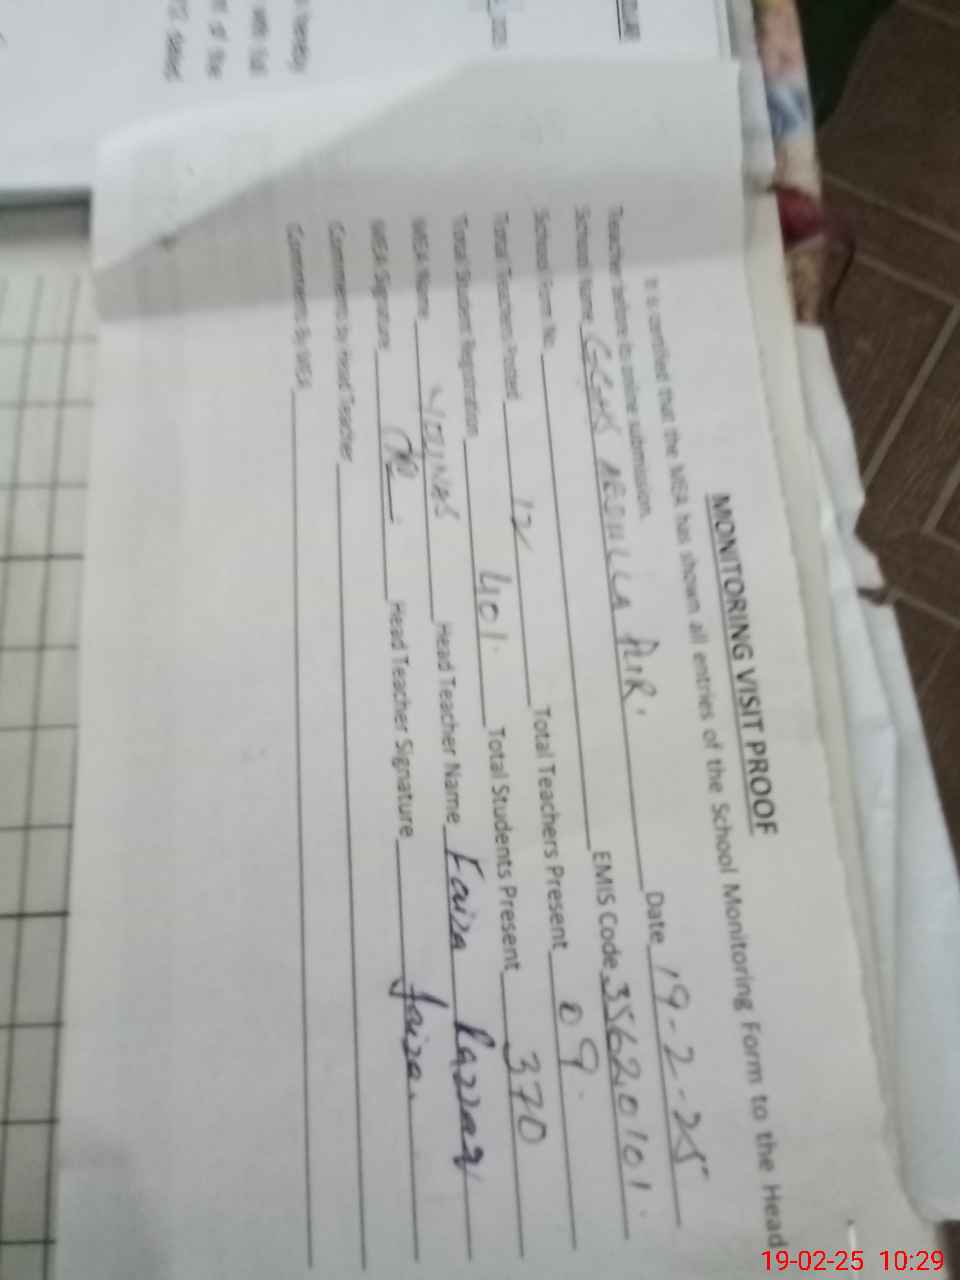 MONITORING VISIT PROOF
It is certified that the MEA has shown all entries of the School Monitoring Form to the Head
Teacher before its online submission.
School Name ABDULLA PUR. Date 19-2-25
School Form No. EMIS Code 35620101.
Total Teachers Posted 12 Total Teachers Present 09.
Total Student Registration 401. Total Students Present 370
MEA Name YOUNAS Head Teacher Name Faiza Razzaq
MEA Signature Head Teacher Signature faiza.
Comments By Head Teacher
Comments By MEA
hereby
of the
19-02-25 10:29